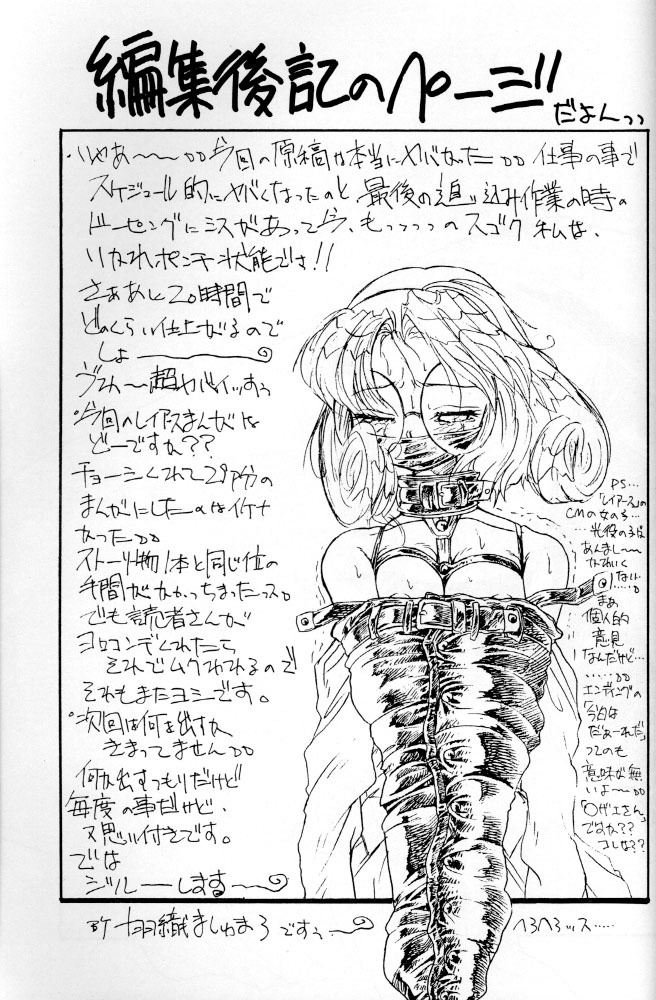 編集後記のページ
だよんっっ
・いやあ〜〜〜今回の原稿は本当にヤバかった 仕事の事で
スケジュール的にヤバくなったのと最後の追い込み作業の時の
ドーピングにミスがあって今、もっっっっのスゴク私は、
いかれポンチ状態でさ!!
さああと20時間で
どのくらい仕上がるので
しょ———
ヴわ〜超ヤバイッすぅ
・今回のレイアースまんがは
どーですか??
チョーシくれて29P分の
まんがにしたのはイケナ
かった
ストーリー物1本と同じ位の
手間がかかっちまったっス。
でも読者さんが
ヨロコンデくれたら
それでムクわれるので
それもまたヨシです。
・次回は何を出すか
きまってません
何か出すつもりだけど
毎度の事だけど、
又思い付きです。
では
ジルーーします〜
PS…
「レイアース」の
CMの女の子…
…光役の子は
あんまし〜〜
かわいく
ない……
まあ
個人的
意見
なんだけど…
……
エンディングの
「今日は
だぁーれだ」
ってのも
意味が無
いよ〜
「○ザエさん」
ですか??
コレは??
羽織ましゅまろですぅ〜
へろへろッス……